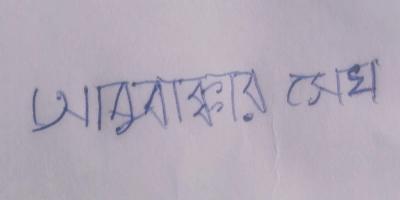 আবুবাক্কার সেখ